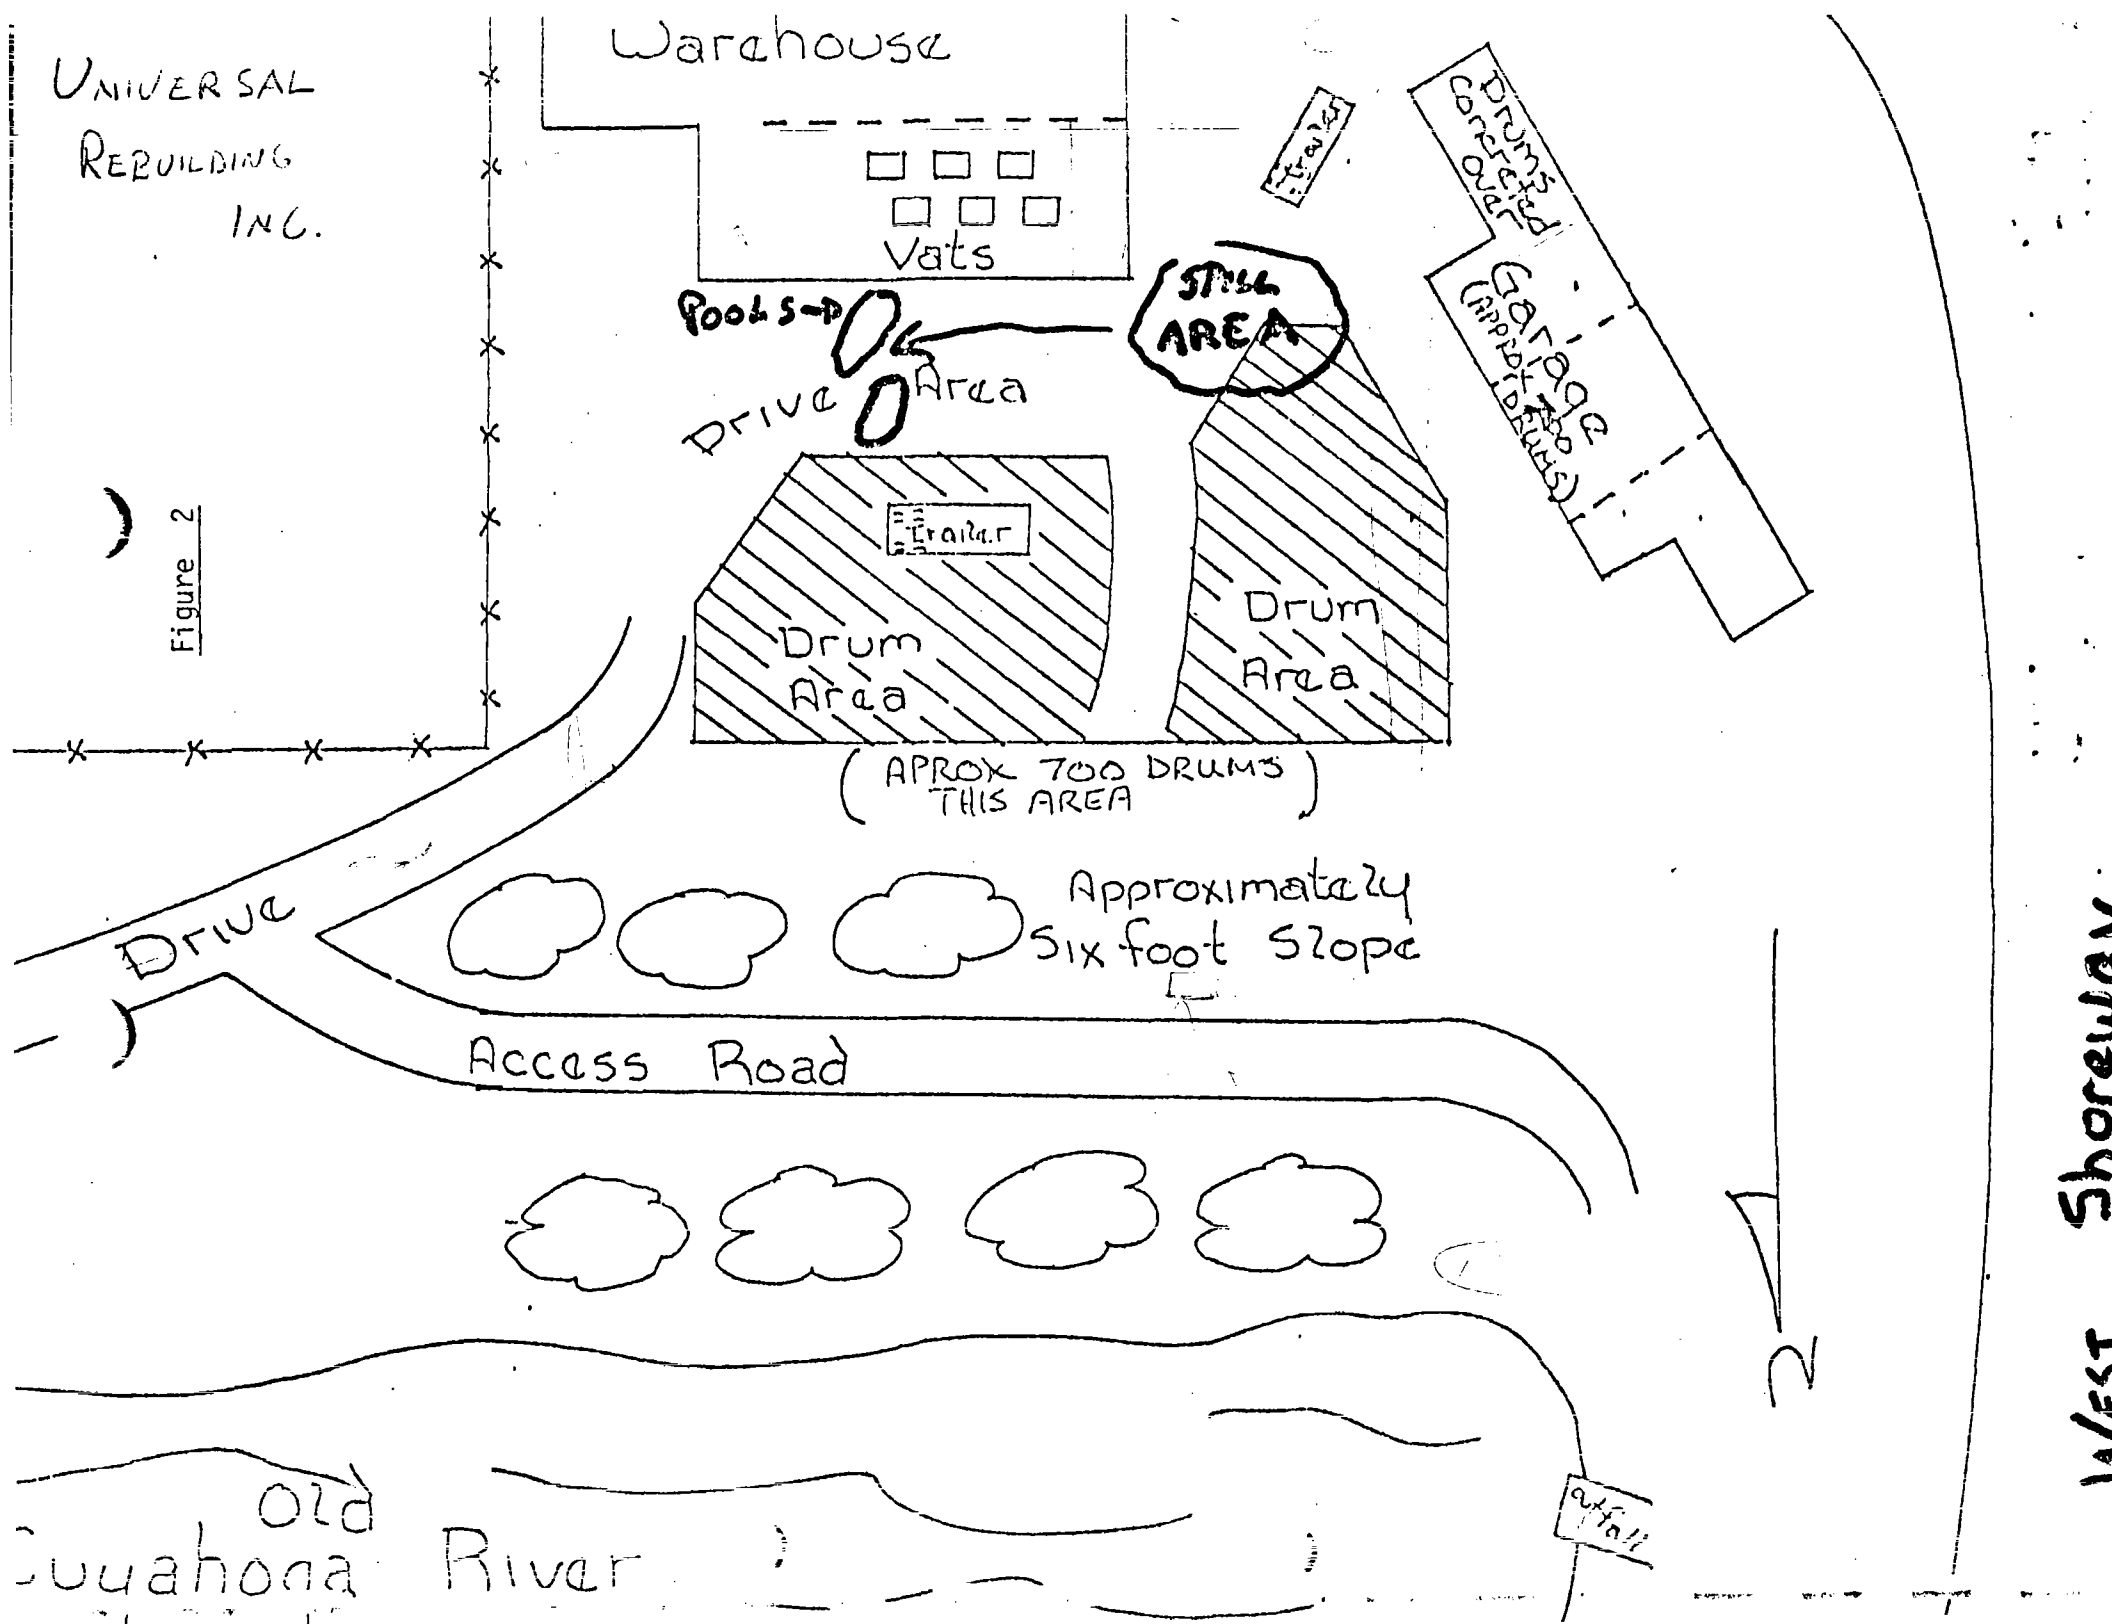 UNIVERSAL
REBUILDING
INC.
Figure 2
Warehouse
Vats
trailer
Drums
Concreted
Over
Garage
(APPROX 700
DRUMS)
POOLS
SPILL
AREA
Drive Area
trailer
Drum
Area
Drum
Area
(APROX 700 DRUMS
THIS AREA)
Approximately
Six foot Slope
Drive
Access Road
N
West Shoreway
Old
Cuyahoga River
outfall